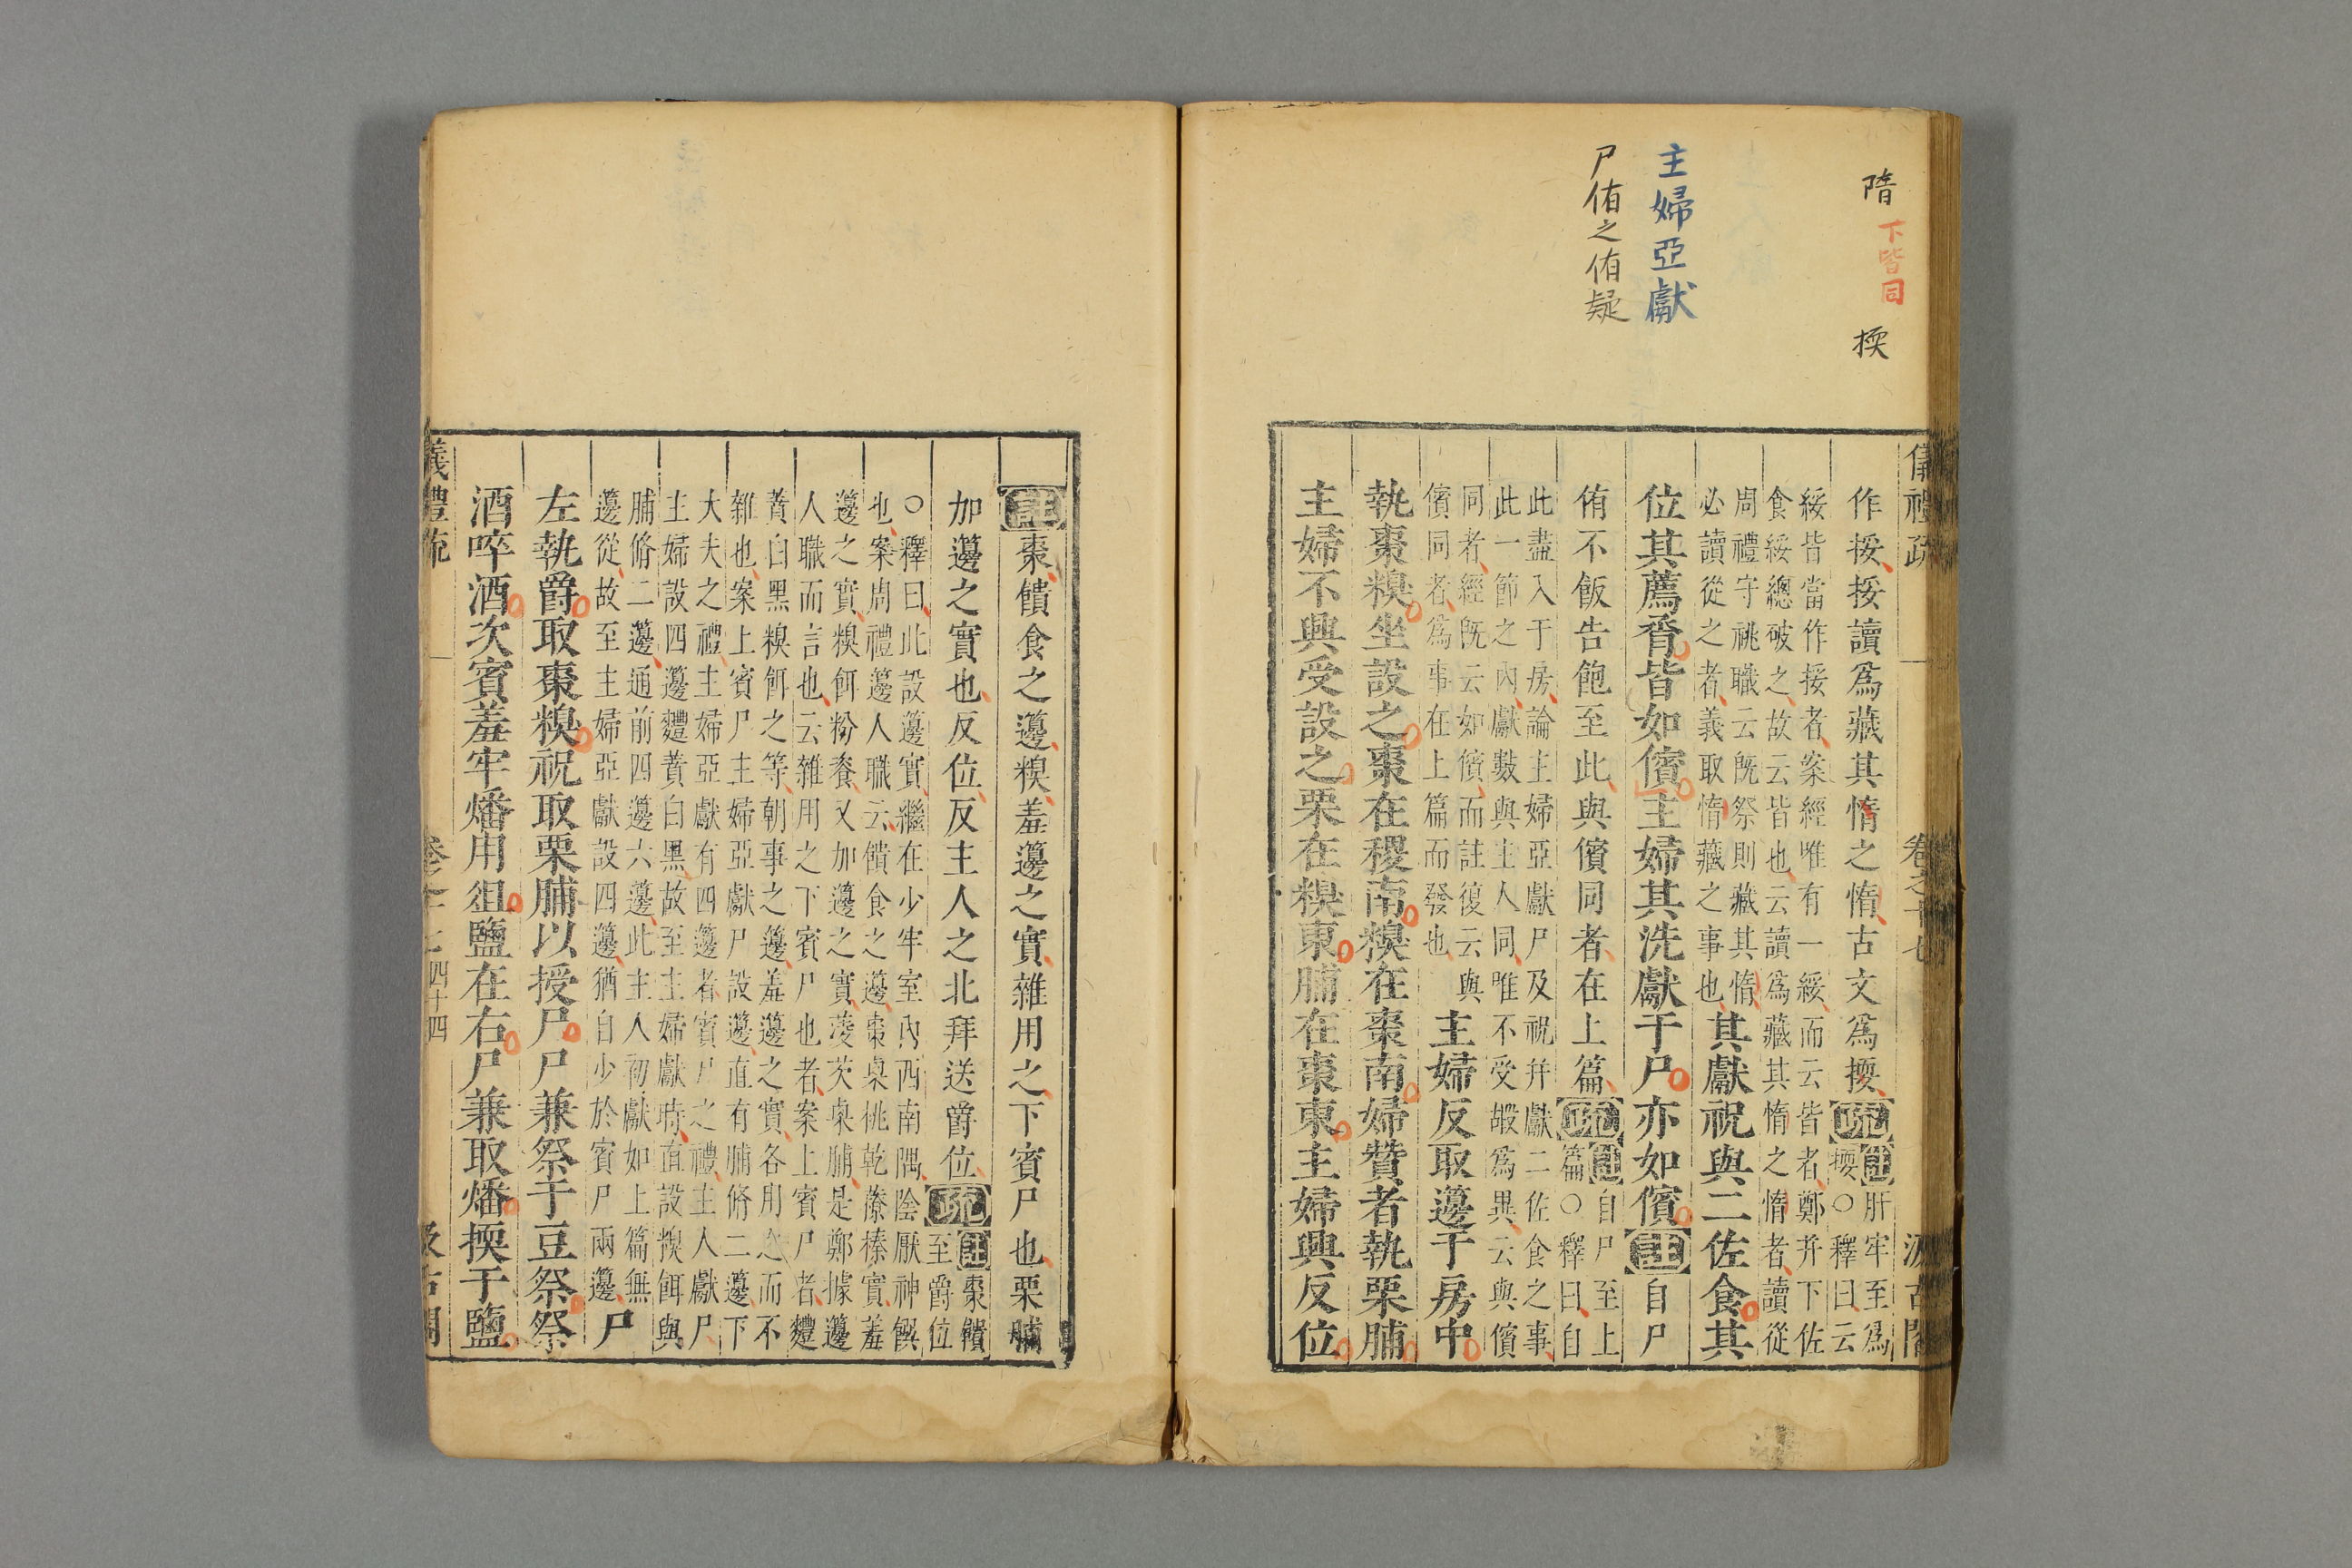 隋
下皆同
揳
主婦亞獻
尸侑之侑疑
儀禮疏 卷之十七 汲古閣
作挼挼讀爲藏其惰之惰古文爲擩疏註肝牢至爲
擩○釋曰云
綏皆當作挼者案經唯有一綏而云皆者鄭并下佐
食綏總破之故云皆也云讀爲藏其惰之惰者讀從
周禮守祧職云旣祭則藏其惰
必讀從之者義取惰藏之事也其獻祝與二佐食其
位其薦脀皆如儐主婦其洗獻于尸亦如儐註自尸
侑不飯告飽至此與儐同者在上篇疏註自尸至上
篇○釋曰自
此盡入于房論主婦亞獻尸及祝并獻二佐食之事
此一節之內獻數與主人同唯不受嘏爲異云與儐
同者經旣云如儐而註復云與
儐同者爲事在上篇而發也主婦反取籩于房中
執棗糗坐設之棗在稷南糗在棗南婦贊者執栗脯
主婦不興受設之栗在糗東脯在棗東主婦興反位
註棗饋食之籩糗羞籩之實雜用之下賓尸也栗脯
加籩之實也反位反主人之北拜送爵位疏註棗饋
至爵位
○釋曰此設籩實繼在少牢室內西南隅陰厭神饌
也案周禮籩人職云饋食之籩棗㮚桃乾䕩榛實羞
籩之實糗餌粉餈又加籩之實蔆芡㮚脯是鄭據籩
人職而言也云雜用之下賓尸也者案上賓尸者麷
蕡白黑糗餌之等朝事之籩羞籩之實各用之而不
雜也案上賓尸主婦亞獻尸設籩直有脯脩二籩下
大夫之禮主婦亞獻有四籩者賓尸之禮主人獻尸
主婦設四籩麷蕡白黑故至主婦獻時直設糗餌與
脯脩二籩通前四籩六籩此主人初獻如上篇無
籩從故至主婦亞獻設四籩猶自少於賓尸兩籩尸
左執爵取棗糗祝取栗脯以授尸尸兼祭于豆祭祭
酒啐酒次賓羞牢燔用俎鹽在右尸兼取燔揳于鹽
儀禮疏 卷之十七 四十四 汲古閣